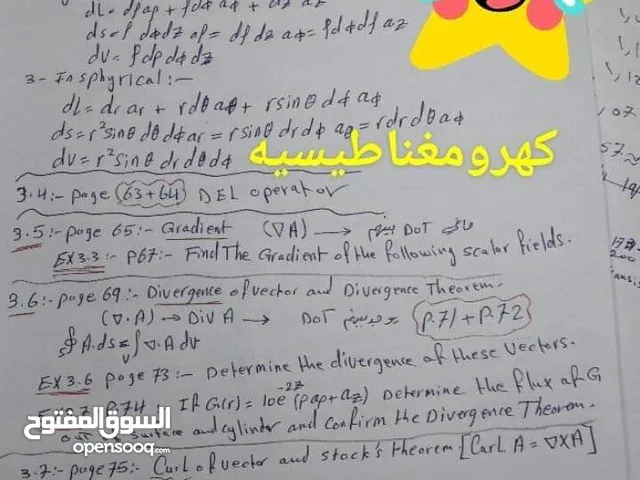 dL = dρaρ + ρdφ aφ + dz az
ds = ρ dφdz aρ = dρ dz aφ = ρdφdρ
dv = ρ dρ dφ dz
3- In sphyrical:-
dL = dr ar + rdθ aθ + r sinθ dφ aφ
ds = r² sinθ dθ dφ ar = r sinθ dr dφ aθ = r dr dθ aφ
dv = r² sinθ dr dθ dφ
كهرومغناطيسيه
3.4:- page 63+64 DEL operator
3.5:- page 65:- Gradient (∇A) → DOT
EX 3.3:- P67:- Find The Gradient of the following scalar fields.
3.6:- page 69:- Divergence of vector and Divergence Theorem.
(∇.A) → Div A → DOT P.71 + P.72
∮ A.ds = ∫v ∇.A dv
EX 3.6 page 73:- Determine the divergence of these vectors.
P.74 - If G(r) = 10e^-2z (ρaρ + az) Determine the flux of G
out surface and cylinder and Confirm the Divergence Theorem.
3.7:- page 75:- Curl of vector and stock's theorem [Curl A = ∇XA]
السوق المفتوح
opensooq.com
107
57
200